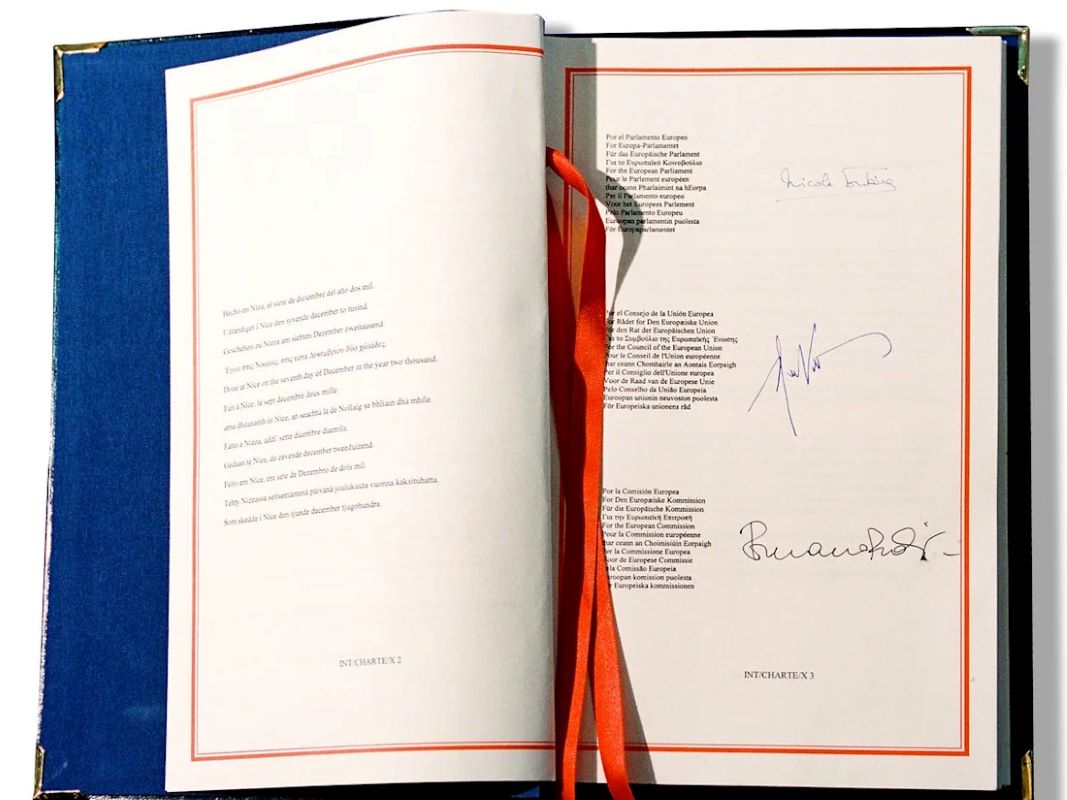 Hecho en Niza, el siete de diciembre del año dos mil.
Udfærdiget i Nice den syvende december to tusind.
Geschehen zu Nizza am siebten Dezember zweitausend.
Έγινε στις Νίκαια, στις επτά Δεκεμβρίου δύο χιλιάδες.
Done at Nice on the seventh day of December in the year two thousand.
Fait à Nice, le sept décembre deux mille.
arna dhéanamh in Nice, an seachtú lá de Nollaig sa bhliain dhá mhíle.
Fatto a Nizza, addì sette dicembre duemila.
Gedaan te Nice, de zevende december tweeduizend.
Feito em Nice, em sete de Dezembro de dois mil.
Tehty Nizzassa seitsemäntenä päivänä joulukuuta vuonna kaksituhatta.
Som skedde i Nice den sjunde december tjugohundra.
INT/CHARTE/X 2
Por el Parlamento Europeo
For Europa-Parlamentet
Für das Europäische Parlament
Για το Ευρωπαϊκό Κοινοβούλιο
For the European Parliament
Pour le Parlement européen
thar ceann Pharlaimint na hEorpa
Per il Parlamento europeo
Voor het Europees Parlement
Pelo Parlamento Europeu
Euroopan parlamentin puolesta
För Europaparlamentet
Nicole
Por el Consejo de la Unión Europea
For Rådet for Den Europæiske Union
Für den Rat der Europäischen Union
Για το Συμβούλιο της Ευρωπαϊκής Ένωσης
For the Council of the European Union
Pour le Conseil de l'Union européenne
thar ceann Chomhairle an Aontais Eorpaigh
Per il Consiglio dell'Unione europea
Voor de Raad van de Europese Unie
Pelo Conselho da União Europeia
Euroopan unionin neuvoston puolesta
För Europeiska unionens råd
Por la Comisión Europea
For Den Europæiske Kommission
Für die Europäische Kommission
Για την Ευρωπαϊκή Επιτροπή
For the European Commission
Pour la Commission européenne
thar ceann an Choimisiúin Eorpaigh
Per la Commissione Europea
Voor de Europese Commissie
Pela Comissão Europeia
Euroopan komission puolesta
För Europeiska kommissionen
INT/CHARTE/X 3